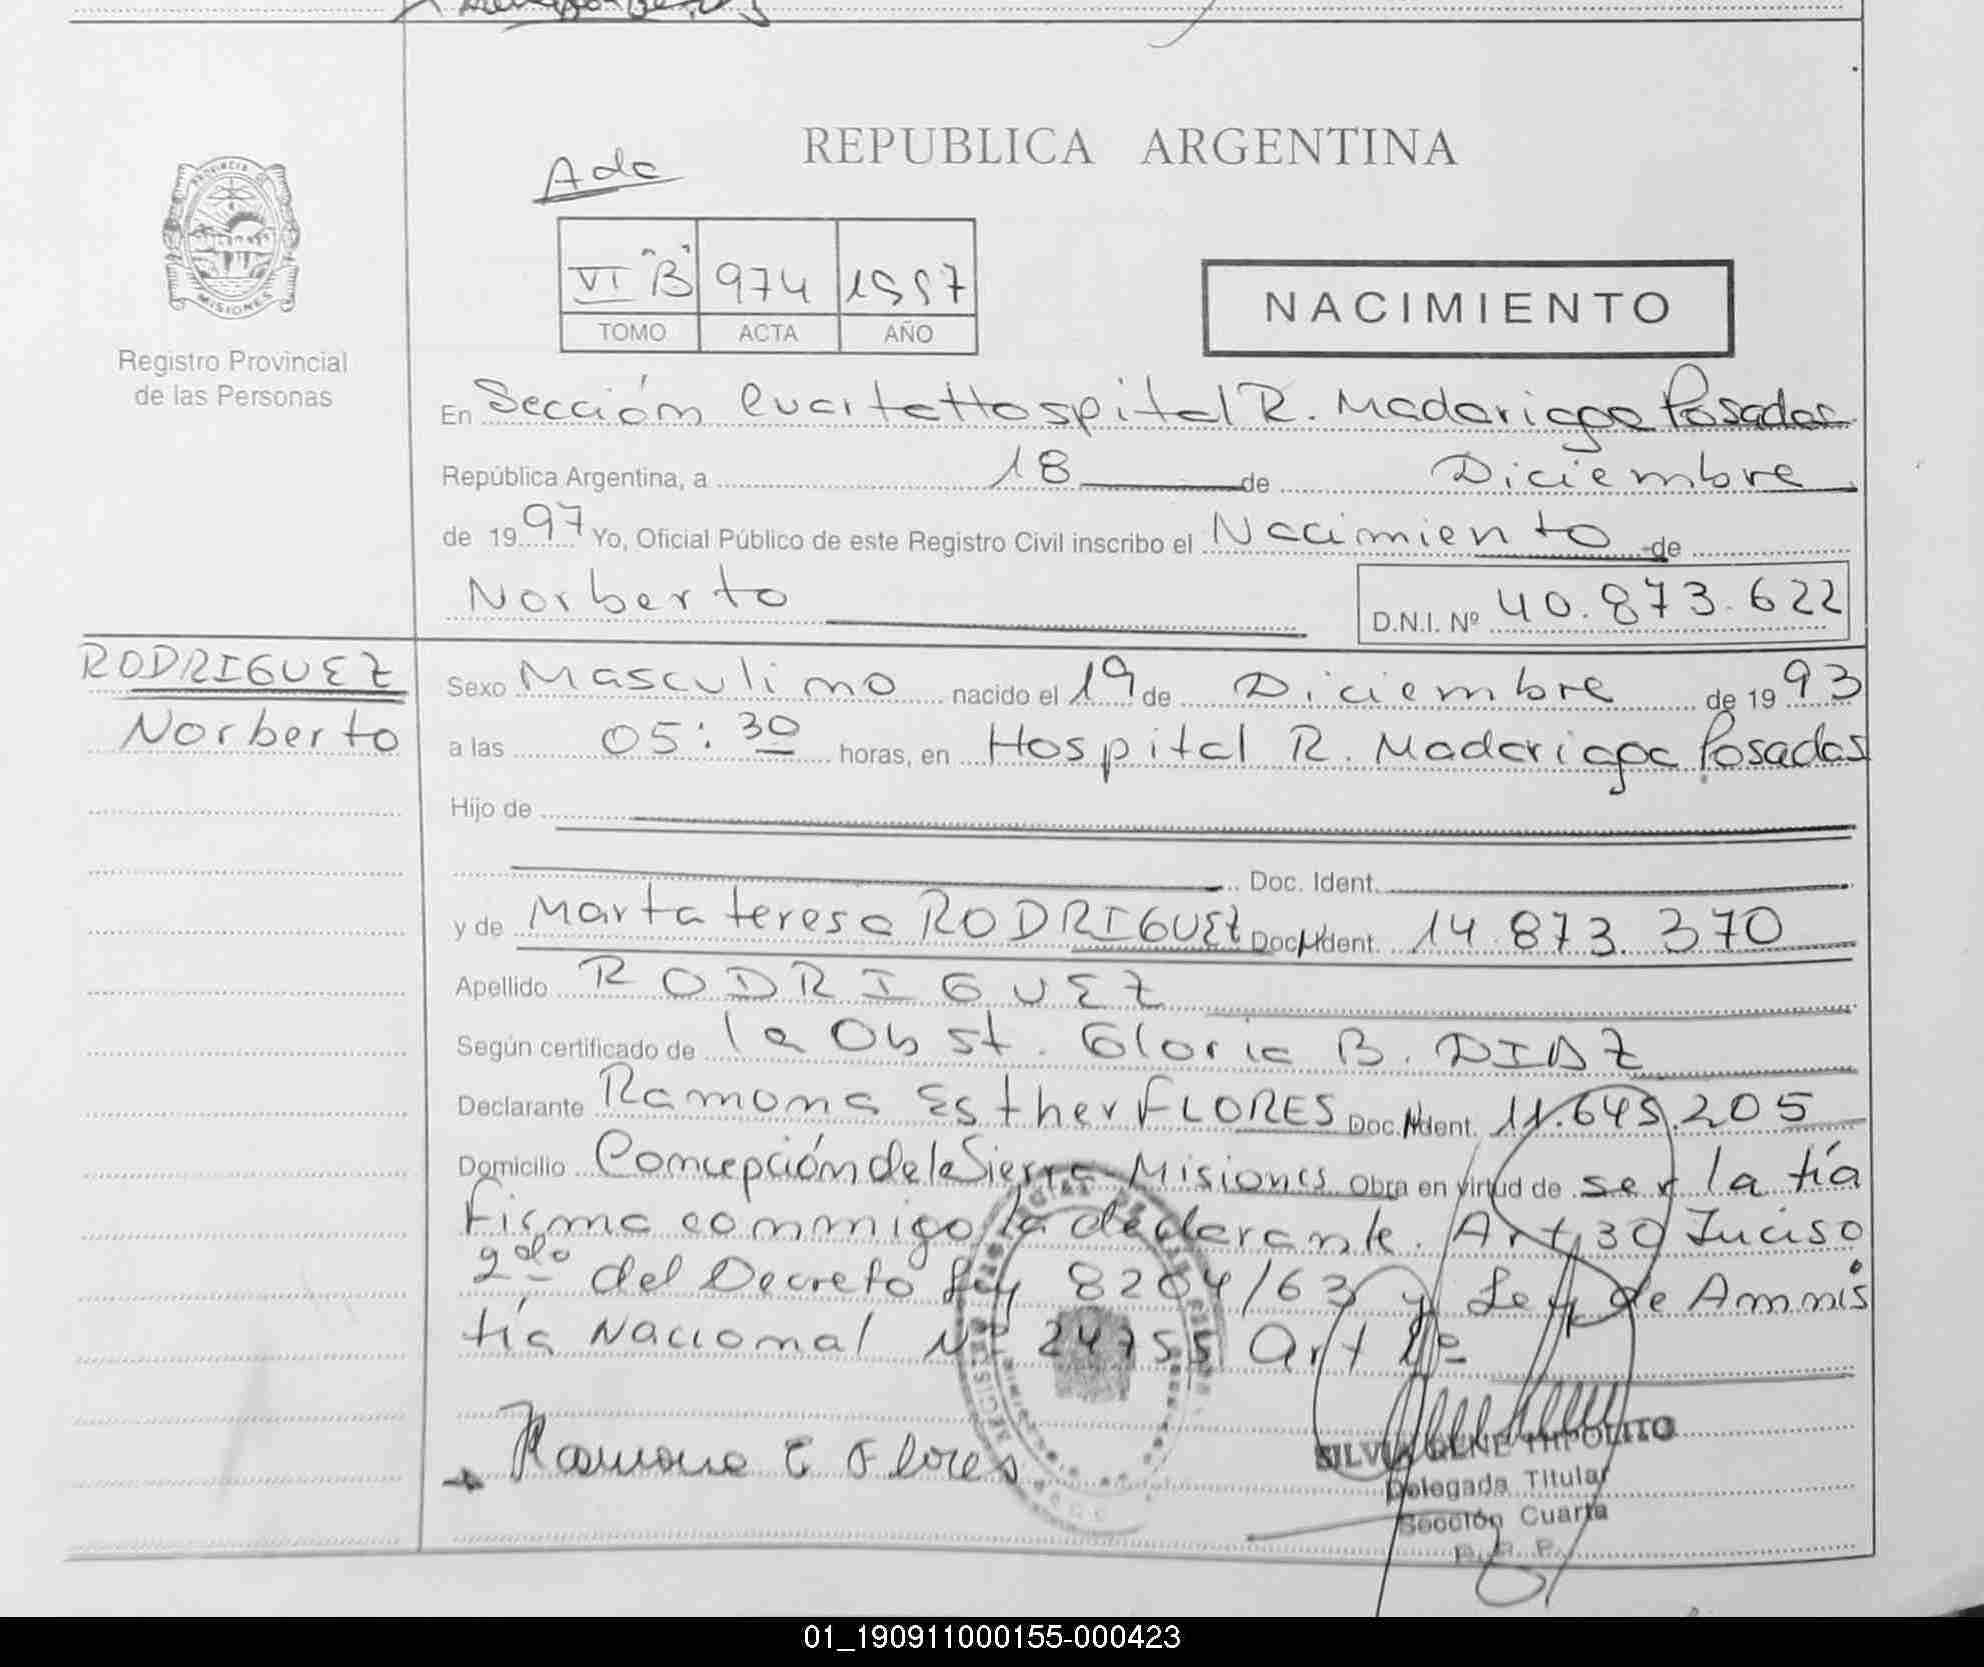 REPUBLICA ARGENTINA
Ada
PROVINCIA DE MISIONES
VI "B" 974 1997
TOMO ACTA AÑO
NACIMIENTO
Registro Provincial
de las Personas
En Sección Cuarta Hospital R. Madariaga Posadas
República Argentina, a 18 de Diciembre
de 1997 Yo, Oficial Público de este Registro Civil inscribo el Nacimiento de
Norberto
D.N.I. Nº 40.873.622
RODRIGUEZ
Norberto
Sexo Masculino nacido el 19 de Diciembre de 1993
a las 05:30 horas, en Hospital R. Madariaga Posadas
Hijo de
Doc. Ident.
y de Marta teresa RODRIGUEZ Doc. Ident. 14.873.370
Apellido RODRIGUEZ
Según certificado de la Obst. Gloria B. DIAZ
Declarante Ramona Esther FLORES Doc. Ident. 11.645.205
Domicilio Concepción de la Sierra Misiones Obra en virtud de ser la tía
Firma conmigo la declarante. Art 30 Inciso
2do del Decreto Ley 8204/63 y Ley de Amnis
tía Nacional Nº 24755 Art 1º
Ramona E Flores
SILVIA IRENE HIPOLITO
Delegada Titular
Sección Cuarta
R. P. P.
01_190911000155-000423